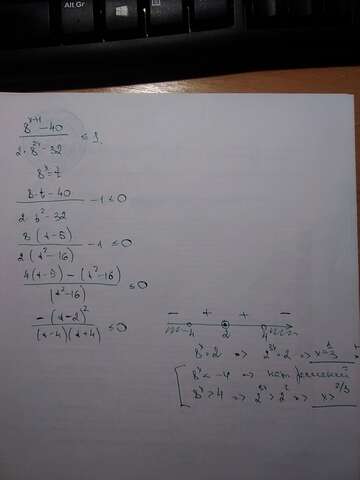 Alt Gr
8^(x+1) - 40
2·8^(2x) - 32
≤ 1.
8^x = t
8·t - 40
2·t² - 32
- 1 ≤ 0
8(t-5)
2(t²-16)
- 1 ≤ 0
4(t-5) - (t²-16)
(t²-16)
≤ 0
-(t-2)²
(t-4)(t+4)
≤ 0
- + + -
-4 2 4
8^x = 2 => 2^(3x) = 2 => x = 1/3
8^x < -4 => нет решений
8^x > 4 => 2^(3x) > 2² => x > 2/3